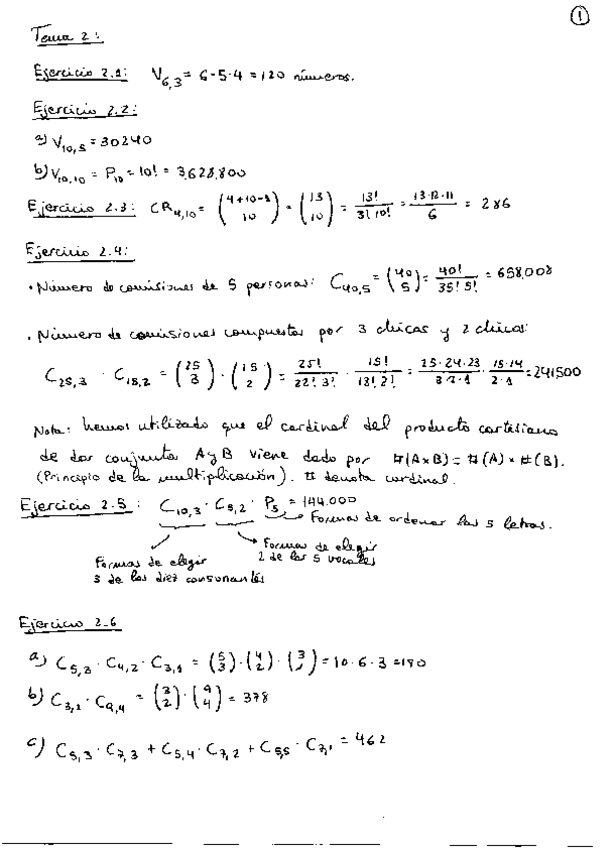 1
Tema 2:
Ejercicio 2.1: V6,3 = 6·5·4 = 120 números.
Ejercicio 2.2:
a) V10,5 = 30240
b) V10,10 = P10 = 10! = 3.628.800
Ejercicio 2.3: CR4,10 = (4+10-1 / 10) = (13 / 10) = 13!/3!10! = 13·12·11/6 = 286
Ejercicio 2.4:
· Número de comisiones de 5 personas: C40,5 = (40 / 5) = 40!/35!5! = 658.008
· Número de comisiones compuestas por 3 chicas y 2 chicos:
C25,3 · C15,2 = (25 / 3) · (15 / 2) = 25!/22!3! · 15!/13!2! = 25·24·23/3·2·1 · 15·14/2·1 = 241500
Nota: hemos utilizado que el cardinal del producto cartesiano
de dos conjuntos A y B viene dado por #(A×B) = #(A) × #(B).
(Principio de la multiplicación). # denota cardinal.
Ejercicio 2.5: C10,3 · C5,2 · P5 = 144.000
Formas de ordenar las 5 letras.
Formas de elegir
2 de las 5 vocales
Formas de elegir
3 de las diez consonantes
Ejercicio 2.6
a) C5,3 · C4,2 · C3,1 = (5 / 3) · (4 / 2) · (3 / 1) = 10·6·3 = 180
b) C3,2 · C9,4 = (3 / 2) · (9 / 4) = 378
c) C5,3 · C7,3 + C5,4 · C7,2 + C5,5 · C7,1 = 462